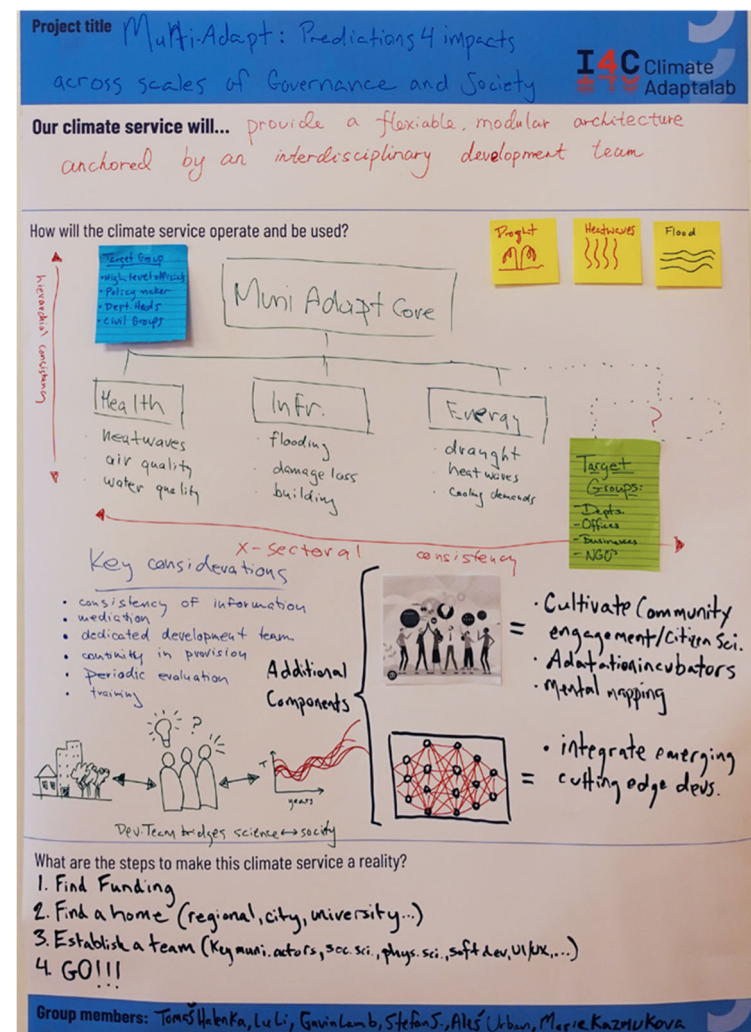 Project title Multi-Adapt: Predictions 4 impacts
across scales of Governance and Society
I4C Climate
Adaptalab
Our climate service will... provide a flexiable, modular architecture
anchored by an interdisciplinary development team
How will the climate service operate and be used?
Droght
Heatwaves
Flood
Target Group
• High level officials
• Policy maker
• Dept. Heads
• Civil Groups
hierarchial consistency
Muni Adapt Core
Health
• heatwaves
• air quality
• water quality
Infr.
• flooding
• damage loss
• building
Energy
• draught
• heatwaves
• cooling demands
?
Target
Groups:
- Depts.
- Offices
- Businesses
- NGO's
x-sectoral consistency
Key considerations
• consistency of information
• mediation
• dedicated development team
• continity in provision
• periodic evaluation
• training
Additional
Components
= • Cultivate Community
engagement/Citizen Sci.
• Adaptation incubators
• Mental mapping
= • integrate emerging
cutting edge devs.
?
T
years
Dev. Team bridges science ↔ socity
What are the steps to make this climate service a reality?
1. Find Funding
2. Find a home (regional, city, university...)
3. Establish a team (Key muni. actors, soc. sci., phys. sci., soft dev, UI/UX,...)
4. GO!!!
Group members: Tomáš Halenka, Lu Li, Gavin Lamb, Stefan S., Aleš Urban, Marie Kazmukova